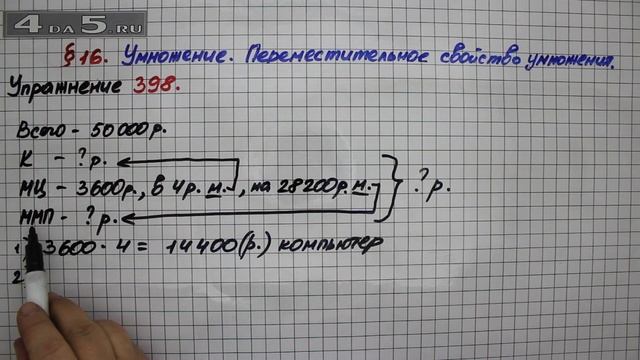 4DA5.RU
§16. Умножение. Переместительное свойство умножения.
Упражнение 398.
Всего - 50000р.
К - ?р.
МЦ - 3600р., в 4р. м., на 28200р. м. } ?р.
ММП - ?р.
1) 3600 · 4 = 14400(р.) компьютер
2